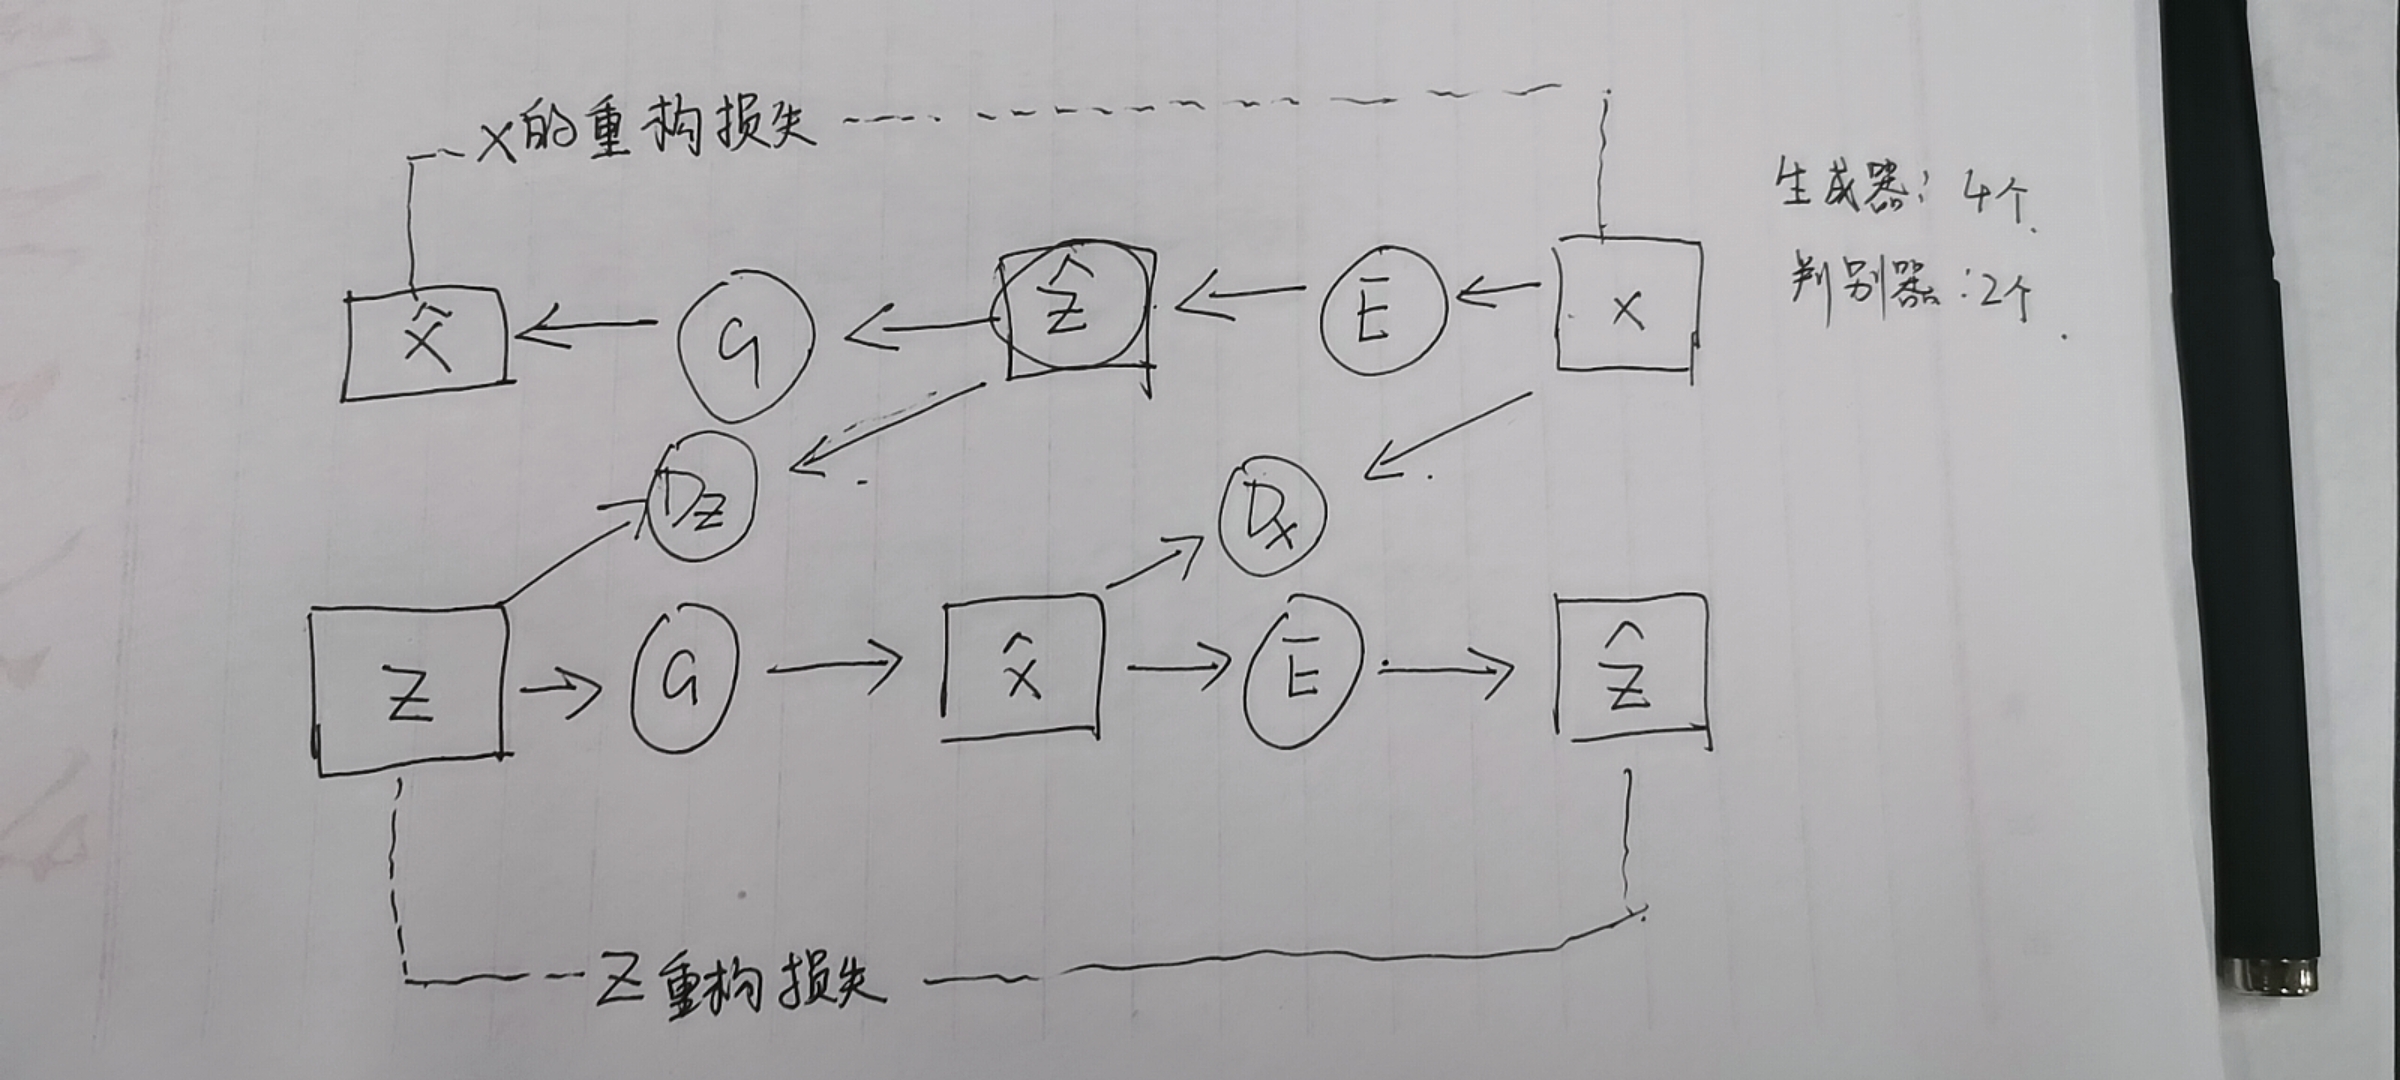 x的重构损失
生成器：4个.
判别器：2个.
x̂ G ẑ E x
Dz Dx
z G x̂ E ẑ
z重构损失